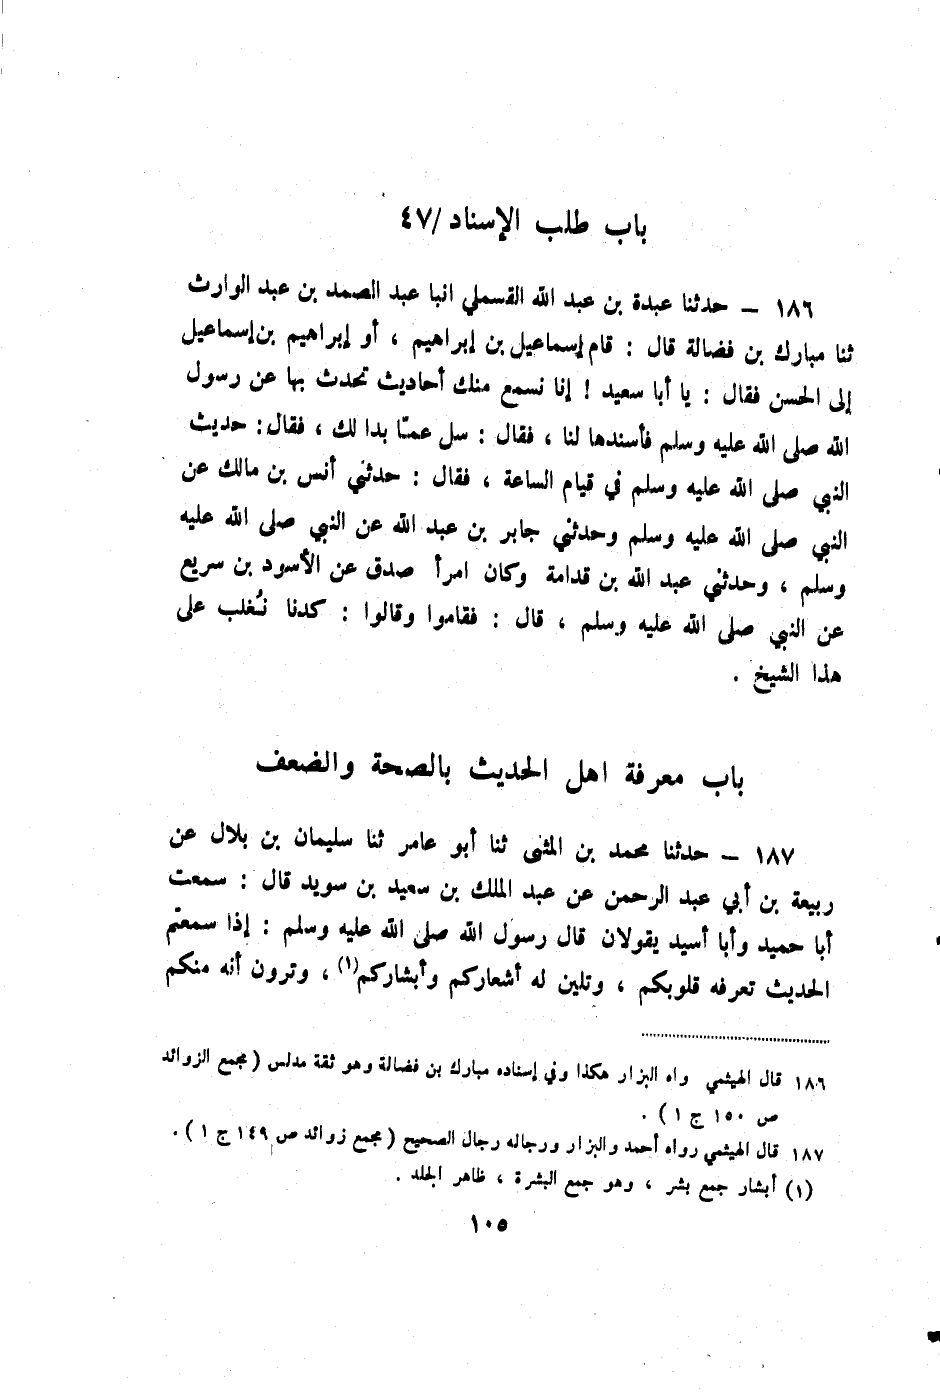 باب طلب الإسناد /٤٧
١٨٦ – حدثنا عبدة بن عبد الله القسملي انبا عبد الصمد بن عبد الوارث
ثنا مبارك بن فضالة قال : قام إسماعيل بن إبراهيم ، أو إبراهيم بن إسماعيل
إلى الحسن فقال : يا أبا سعيد ! إنا نسمع منك أحاديث تحدث بها عن رسول
الله صلى الله عليه وسلم فأسندها لنا ، فقال : سل عمّا بدا لك ، فقال: حديث
النبي صلى الله عليه وسلم في قيام الساعة ، فقال : حدثني أنس بن مالك عن
النبي صلى الله عليه وسلم وحدثني جابر بن عبد الله عن النبي صلى الله عليه
وسلم ، وحدثني عبد الله بن قدامة وكان امرأ صدق عن الأسود بن سريع
عن النبي صلى الله عليه وسلم ، قال : فقاموا وقالوا : كدنا نُغلب على
هذا الشيخ .
باب معرفة اهل الحديث بالصحة والضعف
١٨٧ – حدثنا محمد بن المثنى ثنا أبو عامر ثنا سليمان بن بلال عن
ربيعة بن أبي عبد الرحمن عن عبد الملك بن سعيد بن سويد قال : سمعت
أبا حميد وأبا أسيد يقولان قال رسول الله صلى الله عليه وسلم : إذا سمعتم
الحديث تعرفه قلوبكم ، وتلين له أشعاركم وأبشاركم(١) ، وترون أنه منكم
١٨٦ قال الهيثمي واه البزار هكذا وفي إسناده مبارك بن فضالة وهو ثقة مدلس ( مجمع الزوائد
ص ١٥٠ ج ١ ) .
١٨٧ قال الهيثمي رواه أحمد والبزار ورجاله رجال الصحيح ( مجمع زوائد ص ١٤٩ ج ١ ) .
(١) أبشار جمع بشر ، وهو جمع البشرة ، ظاهر الجلد .
١٠٥